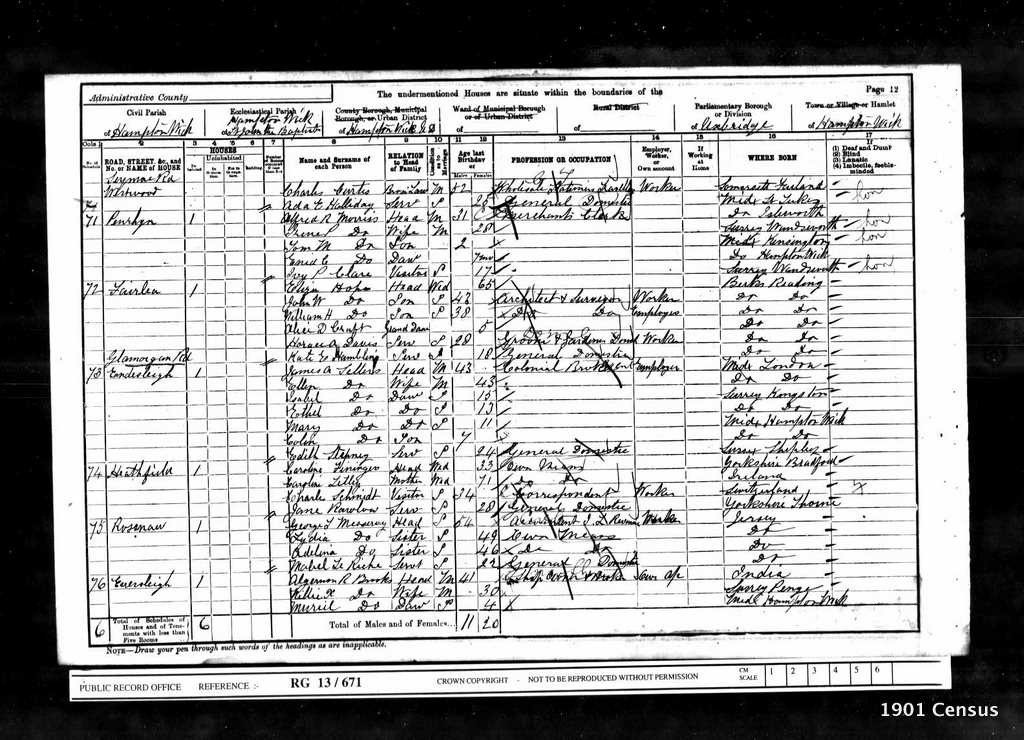 Page 12
The undermentioned Houses are situate within the boundaries of the
Administrative County
Civil Parish
of Hampton Wick
Ecclesiastical Parish
Hampton Wick
of St John the Baptist
County Borough, Municipal
Borough, or Urban District
of Hampton Wick U D
Ward of Municipal Borough
or of Urban District
of
Rural District
of
Parliamentary Borough
or Division
of Uxbridge
Town or Village or Hamlet
of Hampton Wick
Cols. 1 2 3 4 5 6 7 8 9 10 11 12 13 14 15 16 17
ROAD, STREET, &c., and No. or NAME of HOUSE
HOUSES
Inhabited
Uninhabited
Building
Name and Surname of each Person
RELATION to Head of Family
Condition as to Marriage
Age last Birthday of
Males Females
PROFESSION OR OCCUPATION
Employer, Worker, or Own account
If Working at Home
WHERE BORN
(1) Deaf and Dumb
(2) Blind
(3) Lunatic
(4) Imbecile, feeble-minded
Charles Curtis M 52 Wholesale Stationer Worker Somerset
Ada E Halliday Serv S 25 General Domestic Midx St Lukes
71 Penrhyn 1 Alfred R Morris Head M 31 Merchants Clerk Do Isleworth
Irene Do Wife M 28 Surrey Wandsworth
Tom M Do Son 2 Midx Kensington
Enid C Do Daur 7 mo Do Hampton Wick
Ivy P Clare Visitor S 17 Surrey Wandsworth
72 Fairlea 1 Eliza Hope Head Wid 65 Berks Reading
John W Do Son S 43 Architect & Surveyor Worker Do Do
William H Do Son S 38 Do Do Employer Do Do
Alice D Grand Daur 5 Do Do
Horace A Davis Serv S 28 Groom & Gardener Domc Worker Do Do
Glamorgan Rd Kate Hambling Serv S 18 General Domestic Do Do
73 Endesleigh 1 James A Sellers Head M 43 Colonial Employer Midx London
Ellen Do Wife M 43 Do Do
Isabel Do Daur S 15 Surrey Kingston
Ethel Do Do S 13 Do Do
Mary Do Do S 11 Midx Hampton Wick
Colin Do Son 7 Do Do
Edith Stepney Serv S 24 General Domestic Sussex Shipley
74 Heathfield 1 Caroline Head Wid 33 Own Means Yorkshire Bradford
Mother Wid 71 Do Do Ireland
Charles Schmidt Visitor S 34 Correspondent Worker Switzerland
Jane Serv S 28 General Domestic Yorkshire Thorne
75 Rosenau 1 George F Head S 54 Accountant Worker Jersey
Lydia Do Sister S 49 Own Means Do
Adelina Do Sister S 46 Do Do Do
Mabel Le Riche Servt S 22 General Domestic Do
76 Eversleigh 1 Algernon R Brooks Head M 41 Ship Owner & Broker Own a/c India
Do Wife M 30 Surrey Penge
Do Daur S 4 Midx Hampton Wick
6 Total of Schedules of Houses and of Tenements with less than Five Rooms 6 Total of Males and of Females... 11 20
NOTE—Draw your pen through such words of the headings as are inapplicable.
PUBLIC RECORD OFFICE REFERENCE :- RG 13/671 CROWN COPYRIGHT - NOT TO BE REPRODUCED WITHOUT PERMISSION CM SCALE 1 2 3 4 5 6
1901 Census